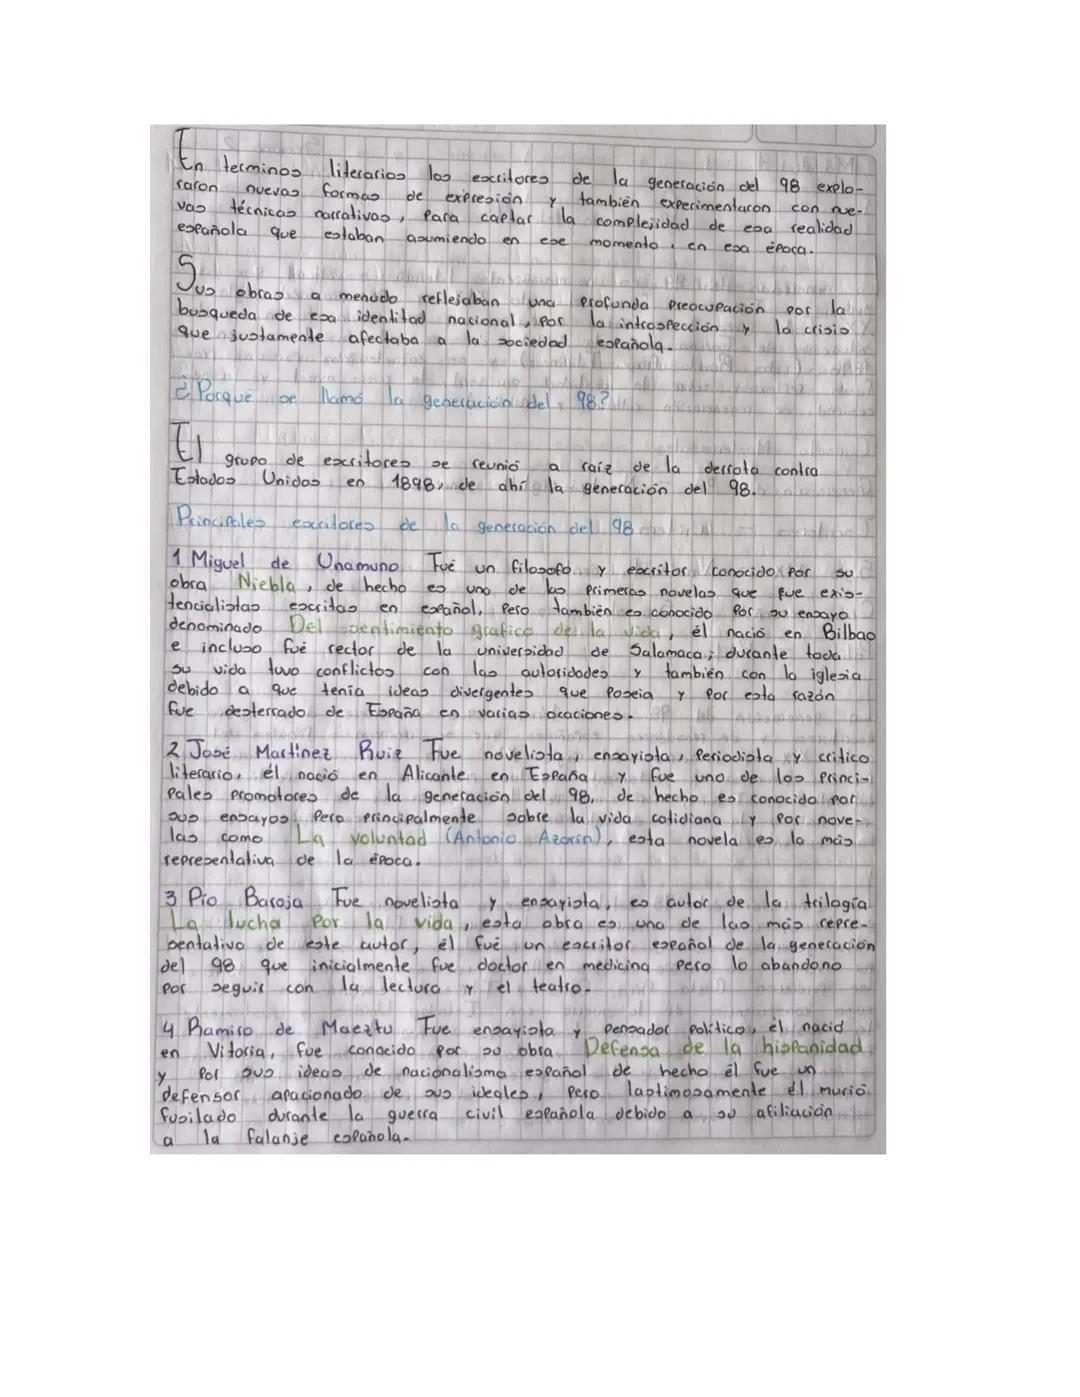 En terminos literarios los escritores de la generación del 98 explo-
raron nuevas formas de expresión y también experimentaron con nue-
vas técnicas narrativas, para captar la complejidad de esa realidad
española que estaban asumiendo en ese momento, en esa época.
Sus obras a menudo reflejaban una profunda preocupación por la
busqueda de esa identidad nacional, por la introspección y la crisis
que justamente afectaba a la sociedad española.
¿Porque se llamó la generación del 98?
El grupo de escritores se reunió a raíz de la derrota contra
Estados Unidos en 1898, de ahí la generación del 98.
Principales escritores de la generación del 98
1 Miguel de Unamuno Fué un filosofo y escritor conocido por su
obra Niebla, de hecho es una de las primeras novelas que fue exis-
tencialistas escritas en español, pero también es conocido por su ensayo
denominado Del sentimiento grafico de la vida, él nació en Bilbao
e incluso fué rector de la universidad de Salamaca; durante toda
su vida tuvo conflictos con las autoridades y también con la iglesia
debido a que tenia ideas divergentes que poseia y por esta razón
fue desterrado de España en varias ocaciones.
2 José Martinez Ruiz Fue novelista, ensayista, periodista y critico
literario, él nació en Alicante en España y fue uno de los princi-
pales promotores de la generación del 98, de hecho es conocido por
sus ensayos pero principalmente sobre la vida cotidiana y por nove-
las como La voluntad (Antonio Azorin), esta novela es la más
representativa de la época.
3 Pio Baroja Fue novelista y ensayista, es autor de la trilogía
La lucha por la vida, esta obra es una de las más repre-
sentativa de este autor, él fué un escritor español de la generación
del 98 que inicialmente fue doctor en medicina pero lo abandono
por seguir con la lectura y el teatro.
4 Ramiro de Maeztu Fue ensayista y pensador político, él nació
en Vitoria, fue conocido por su obra Defensa de la hispanidad
y por sus ideas de nacionalismo español de hecho él fue un
defensor apacionado de sus ideales, pero lastimosamente él murió
fusilado durante la guerra civil española debido a su afiliación
a la falanje española.